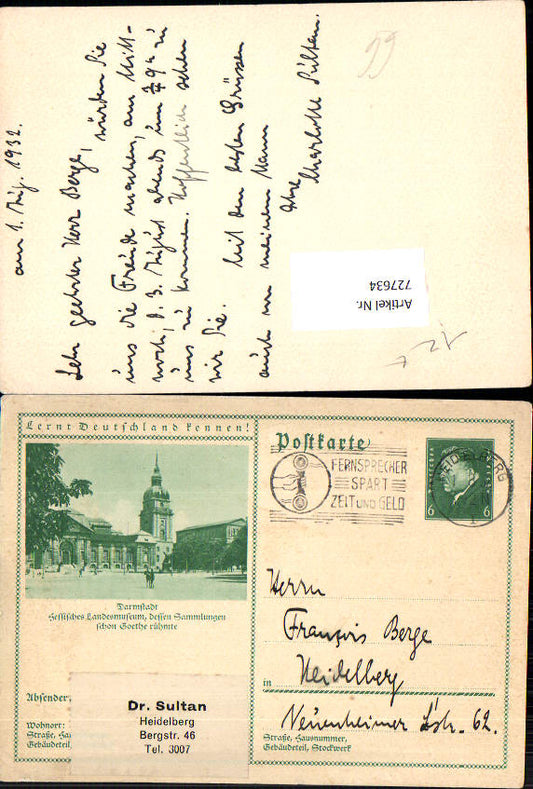 am 1. Aug. 1932.
Sehr geehrter Herr Berge, würden Sie
uns die Freude machen, am Mitt-
woch, d. 3. August abends um ½ 9 h zu
uns zu kommen. Hoffentlich sehen
wir Sie.
Mit den besten Grüssen
auch von meinem Mann
Ihre
Charlotte Sultan.
59
Artikel Nr.
727634
12
Lernt Deutschland kennen!
Postkarte
FERNSPRECHER
SPART
ZEIT UND GELD
HEIDELBERG
6 6
Darmstadt
Hessisches Landesmuseum, dessen Sammlungen
schon Goethe rühmte
Herrn
François Berge
in Heidelberg
Neuenheimer L'str. 62.
Straße, Hausnummer,
Gebäudeteil, Stockwerk
Absender:
Wohnort:
Straße, Hau
Gebäudeteil,
Dr. Sultan
Heidelberg
Bergstr. 46
Tel. 3007